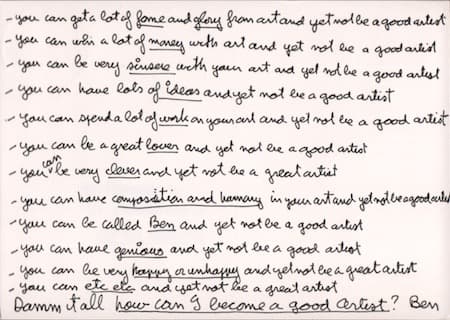 - you can get a lot of fame and glory from art and yet not be a good artist
- you can win a lot of money with art and yet not be a good artist
- you can be very sincere with your art and yet not be a good artist
- you can have lots of ideas and yet not be a good artist
- you can spend a lot of work on your art and yet not be a good artist
- you can be a great lover and yet not be a good artist
- you can be very clever and yet not be a great artist
- you can have composition and harmony in your art and yet not be a good artist
- you can be called Ben and yet not be a good artist
- you can have genious and yet not be a good artist
- you can be very happy or unhappy and yet not be a great artist
- you can etc etc and yet not be a great artist
Damm it all how can I become a good artist? Ben